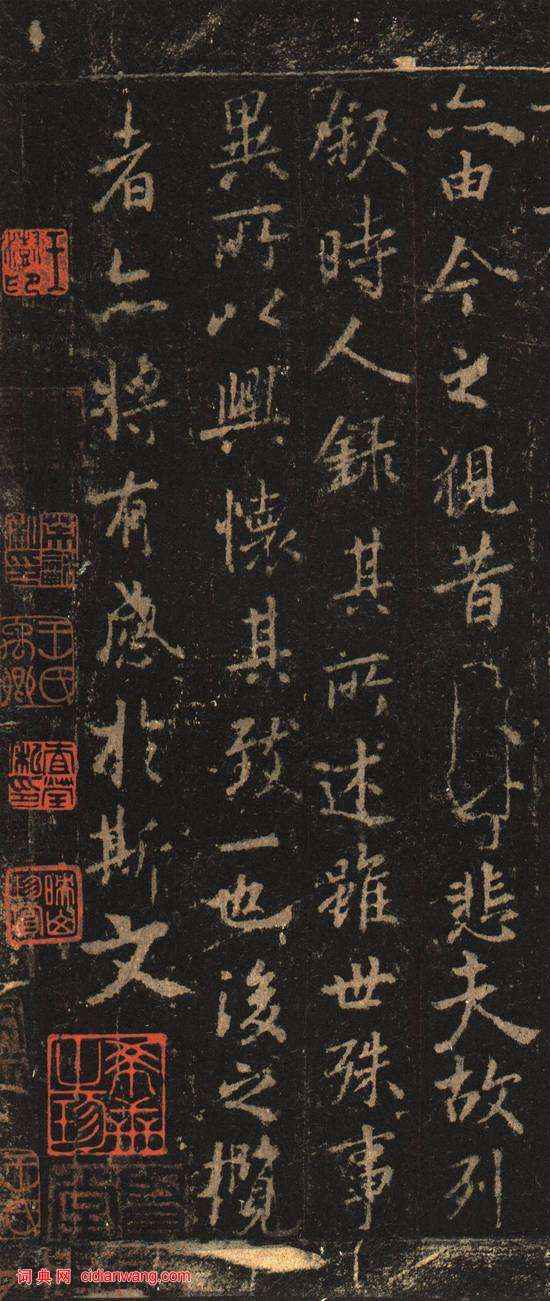 亦由今之視昔悲夫故列
叙時人録其所述雖世殊事
異所以興懷其致一也後之攬
者亦將有感於斯文
王澍印
王氏禹卿
詞典网 cidianwang.com